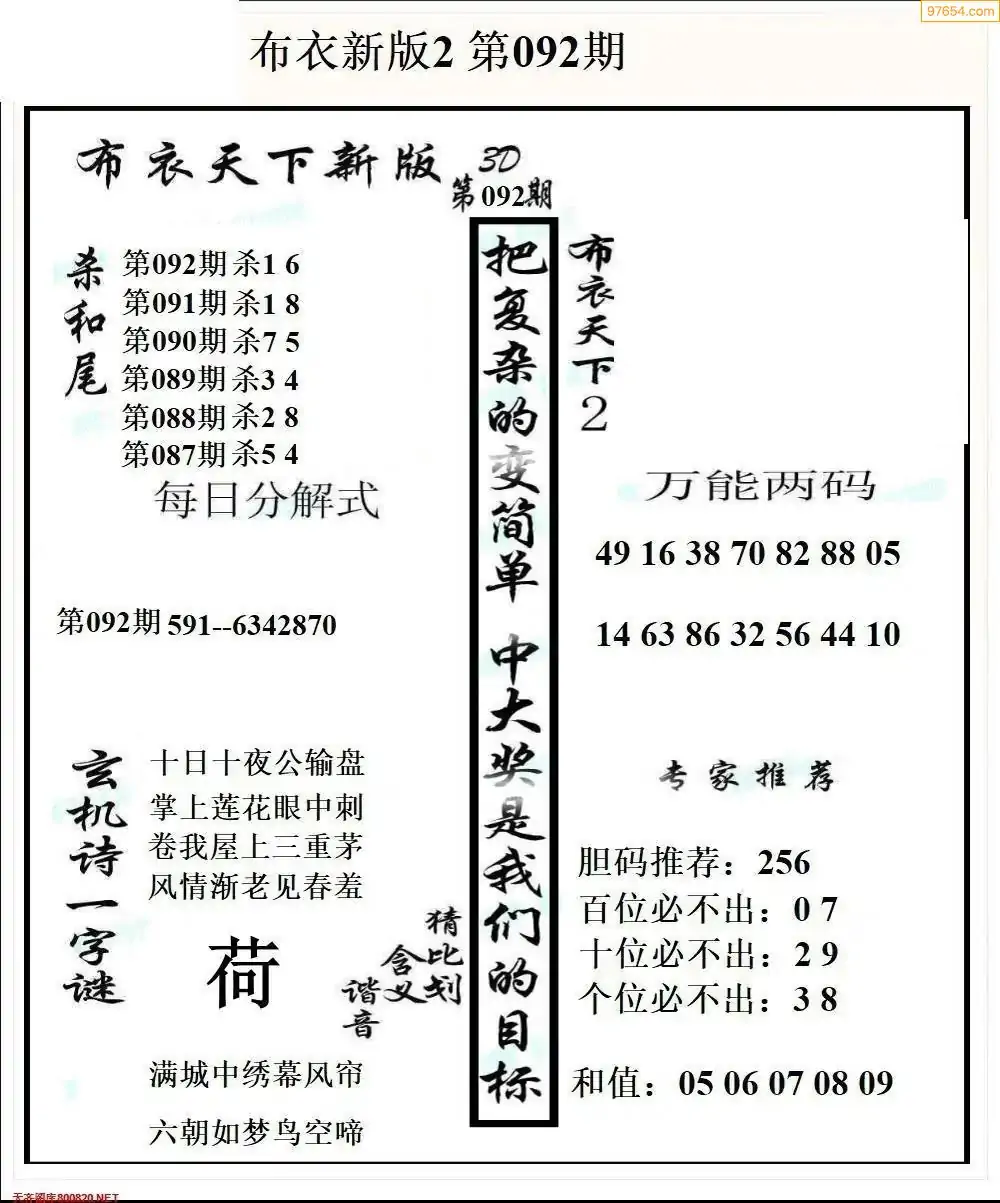 97654.com
布衣新版2 第092期
布衣天下新版
3D
第092期
杀和尾
第092期杀1 6
第091期杀1 8
第090期杀7 5
第089期杀3 4
第088期杀2 8
第087期杀5 4
每日分解式
第092期591--6342870
玄机诗一字谜
十日十夜公输盘
掌上莲花眼中刺
卷我屋上三重茅
风情渐老见春羞
荷
猜比划
含义
谐音
满城中绣幕风帘
六朝如梦鸟空啼
把复杂的变简单 中大奖是我们的目标
布衣天下2
万能两码
49 16 38 70 82 88 05
14 63 86 32 56 44 10
专家推荐
胆码推荐：256
百位必不出：0 7
十位必不出：2 9
个位必不出：3 8
和值：05 06 07 08 09
天齐图库800820.NET